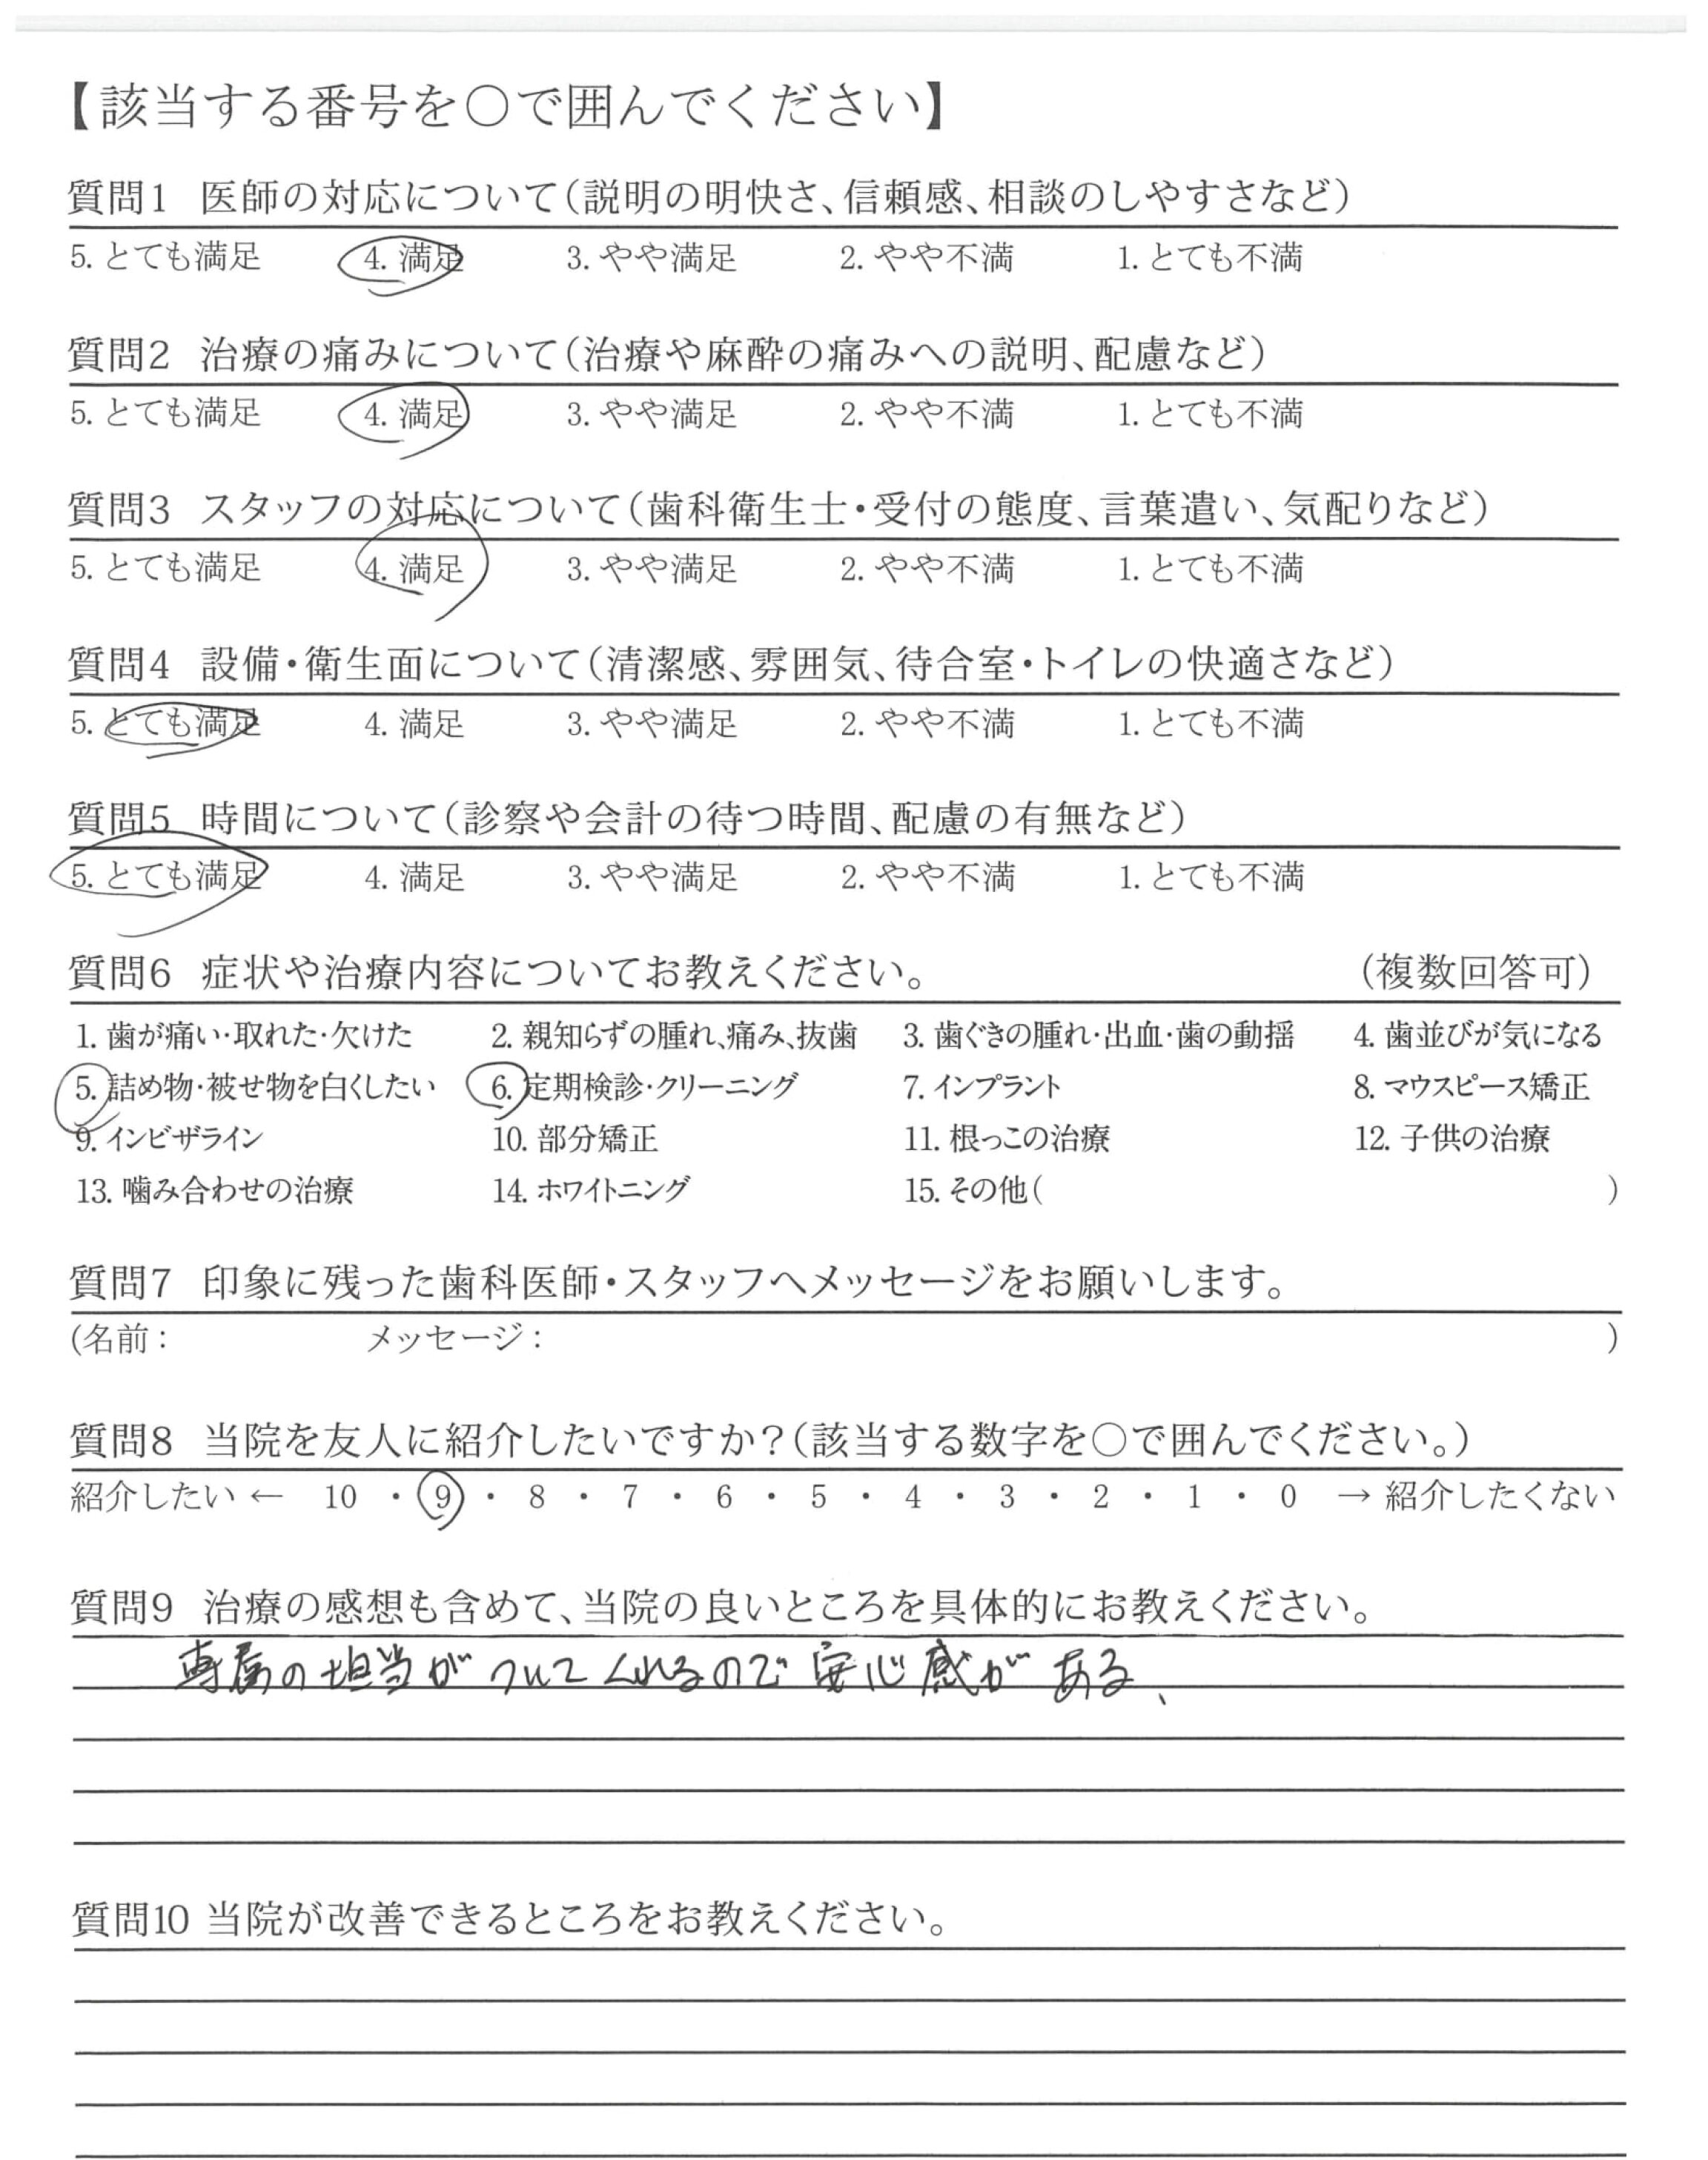 【該当する番号を○で囲んでください】
質問1 医師の対応について(説明の明快さ、信頼感、相談のしやすさなど)
5. とても満足 4. 満足 3. やや満足 2. やや不満 1. とても不満
質問2 治療の痛みについて(治療や麻酔の痛みへの説明、配慮など)
5. とても満足 4. 満足 3. やや満足 2. やや不満 1. とても不満
質問3 スタッフの対応について(歯科衛生士・受付の態度、言葉遣い、気配りなど)
5. とても満足 4. 満足 3. やや満足 2. やや不満 1. とても不満
質問4 設備・衛生面について(清潔感、雰囲気、待合室・トイレの快適さなど)
5. とても満足 4. 満足 3. やや満足 2. やや不満 1. とても不満
質問5 時間について(診察や会計の待つ時間、配慮の有無など)
5. とても満足 4. 満足 3. やや満足 2. やや不満 1. とても不満
質問6 症状や治療内容についてお教えください。 (複数回答可)
1. 歯が痛い・取れた・欠けた 2. 親知らずの腫れ、痛み、抜歯 3. 歯ぐきの腫れ・出血・歯の動揺 4. 歯並びが気になる
5. 詰め物・被せ物を白くしたい 6. 定期検診・クリーニング 7. インプラント 8. マウスピース矯正
9. インビザライン 10. 部分矯正 11. 根っこの治療 12. 子供の治療
13. 噛み合わせの治療 14. ホワイトニング 15. その他( )
質問7 印象に残った歯科医師・スタッフへメッセージをお願いします。
(名前: メッセージ: )
質問8 当院を友人に紹介したいですか?(該当する数字を○で囲んでください。)
紹介したい ← 10 ・ 9 ・ 8 ・ 7 ・ 6 ・ 5 ・ 4 ・ 3 ・ 2 ・ 1 ・ 0 → 紹介したくない
質問9 治療の感想も含めて、当院の良いところを具体的にお教えください。
専属の担当がついてくれるので安心感がある、
質問10 当院が改善できるところをお教えください。